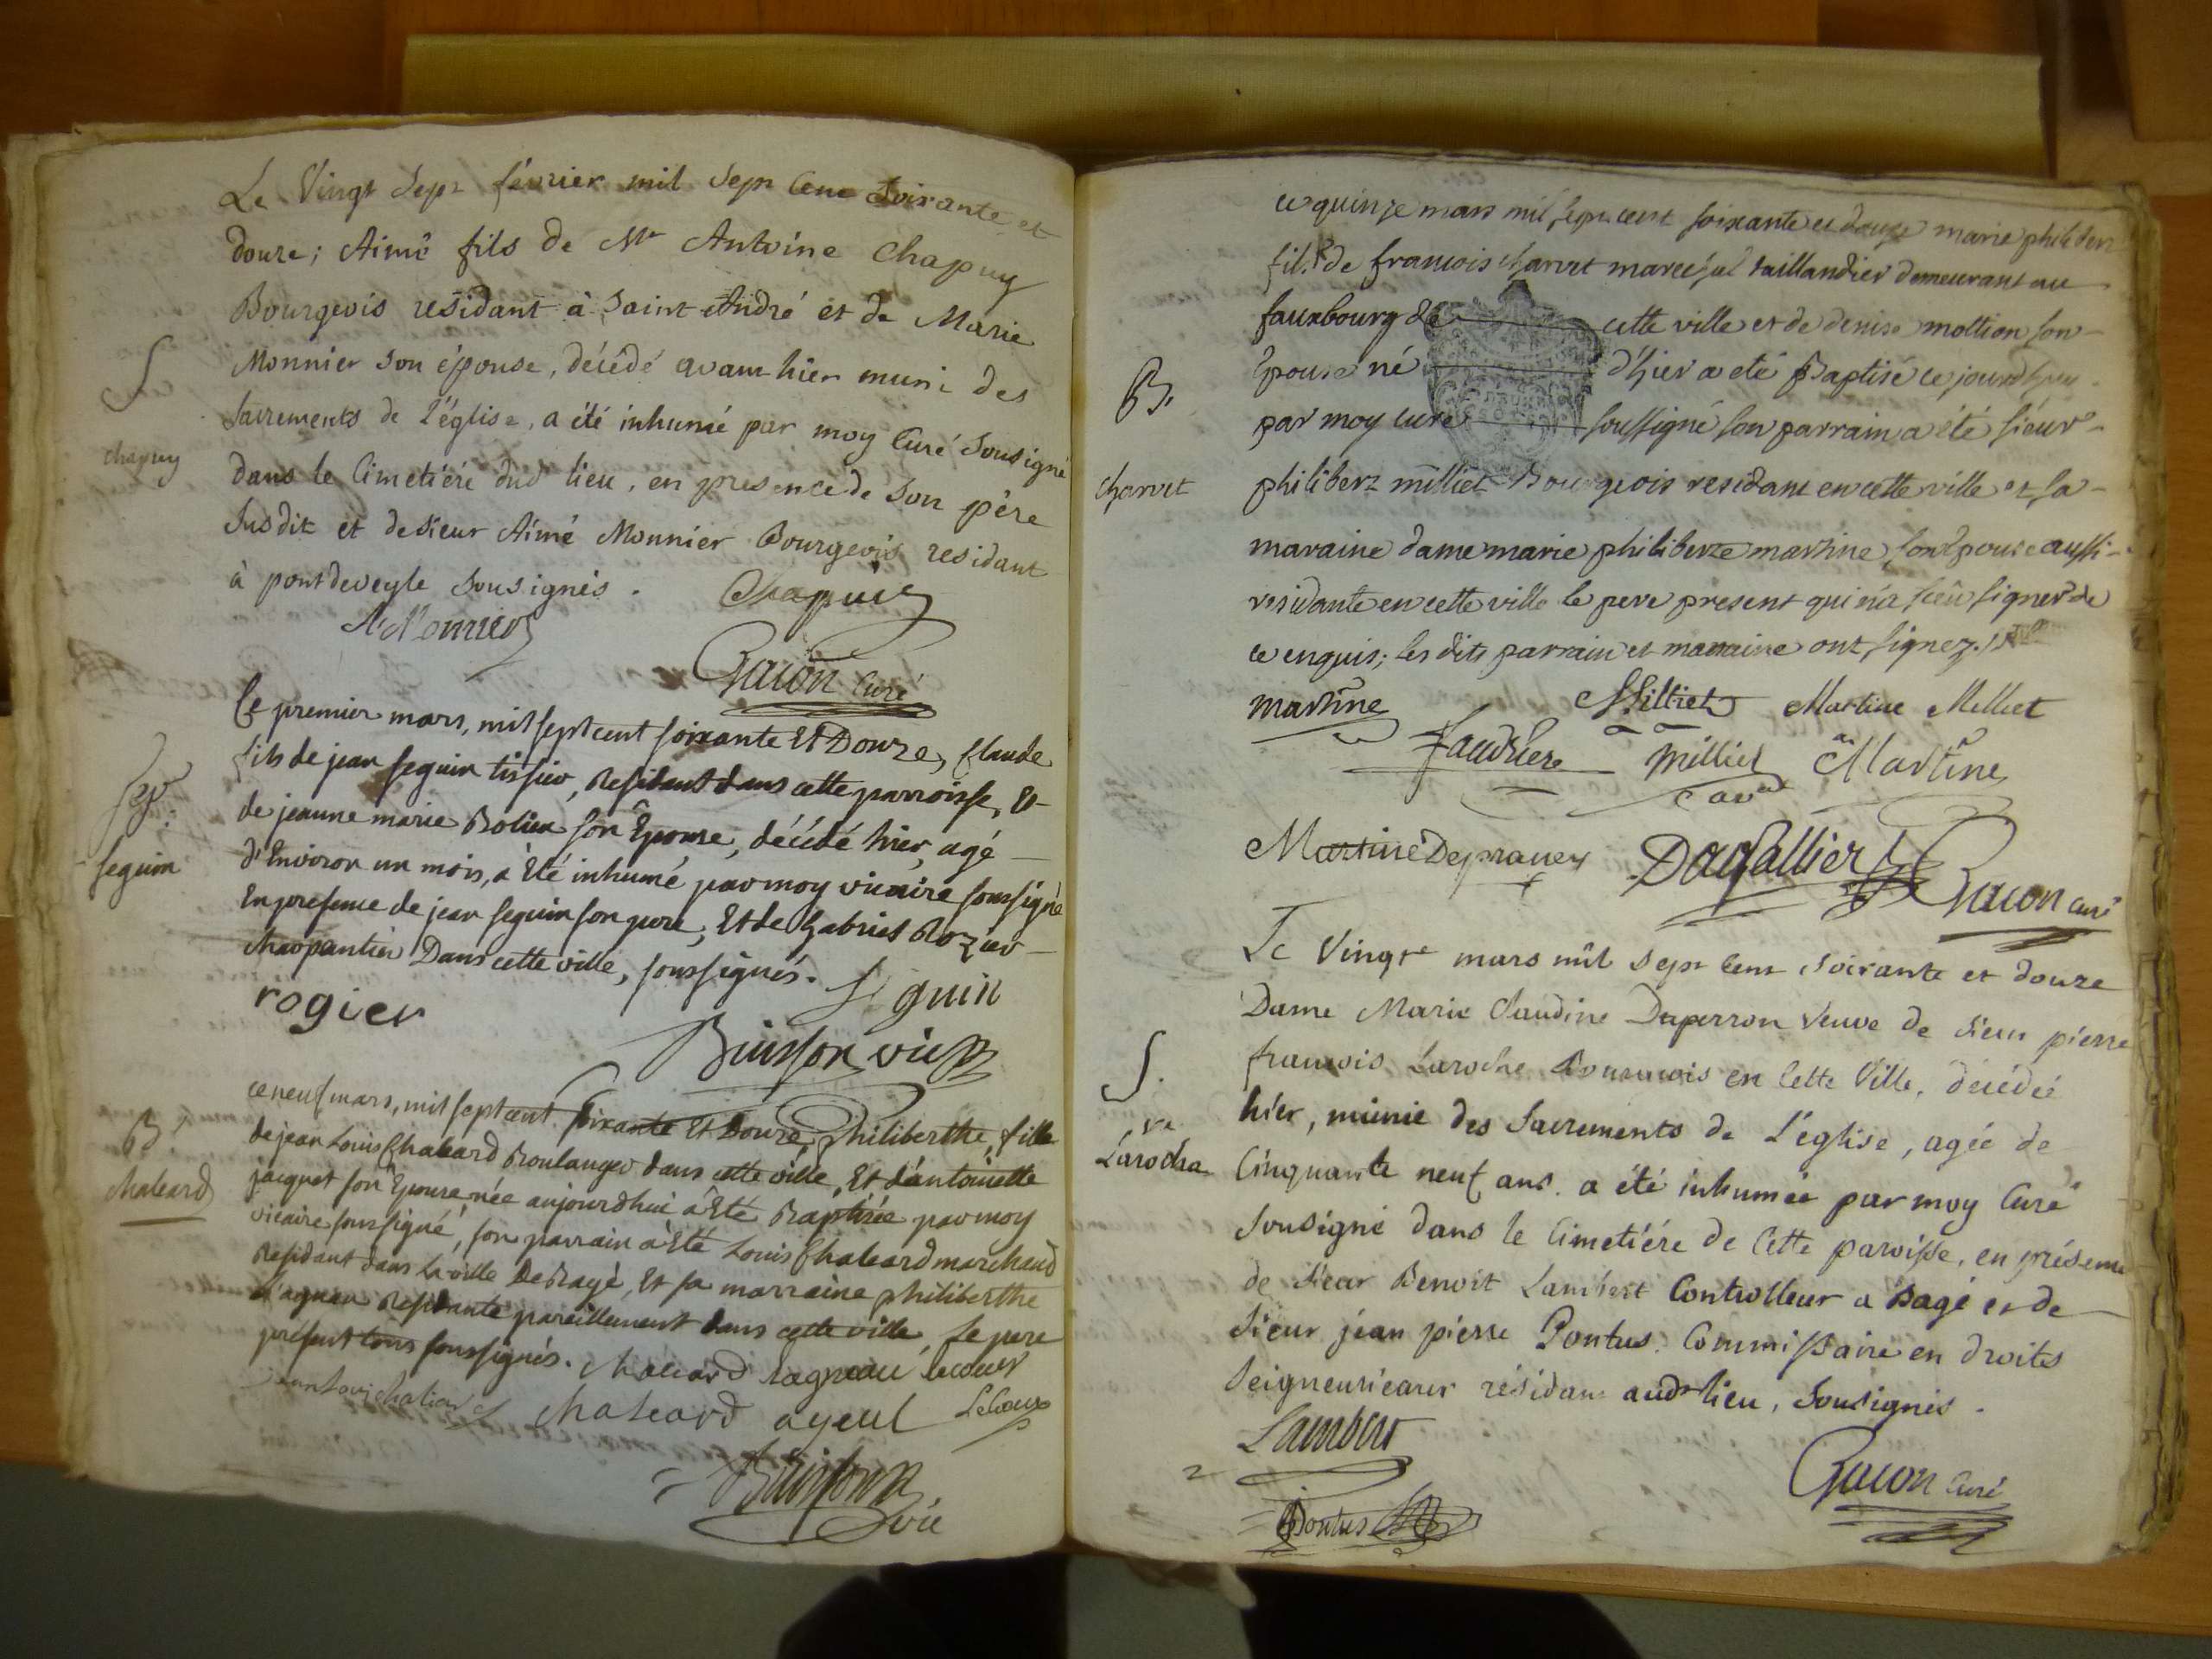 Le Vingt Sept février mil Sept Cent Soixante et
douze; Aimé fils de Mr Antoine Chapuy
Bourgeois residant à Saint André et de Marie
Monnier Son épouse, décédé avant hier muni des
Sacrements de l'église, a été inhumé par moy Curé Sousigné
dans le Cimetiére dud lieu, en presence de Son pére
Susdit et de Sieur Aimé Monnier Bourgeois residant
à pontdeveyle Sousignés.
S
chapuy
Chapuis
Monnier
Curé
Ce premier mars, mil sept cent soixante Et Douze, Claude
fils de jean seguin tissier, Residant dans cette parroisse, Et
de jeanne marie Bolien son Epouse, décédé hier, agé
d'Environ un mois, a Eté inhumé par moy vicaire soussigné
En presence de jean seguin son pere, Et de Gabriel Rozier
charpantier Dans cette ville, soussignés.
Sep
seguin
Seguin
rogier
Buisson vic
ce neuf mars, mil sept cent soixante Et Douze, philiberthe, fille
de jean Louis Chaleard Boulanger dans cette ville, Et d'antoinette
jacquet son Epouse, née aujourdhui a Eté Baptisée par moy
vicaire soussigné, son parrain a Eté Louis Chaleard marchand
Residant dans la ville de Bagé, Et sa marraine philiberthe
Residante pareillement dans cette ville, Le pere
présent tous soussignés.
B
chaleard
chaleard lagneau lecoeur
chaleard ayeul
Buisson
vic
ce quinze mars mil sept cent soixante et douze marie philibert
fils de francois charvet marechal taillandier demeurant au
fauxbourg de cette ville et de denise mottion son
Epouse né d'hier a eté Baptisé ce jourdhuy
par moy curé soussigné son parrain a été sieur
philibert milliet Bourgeois residant en cette ville et sa
maraine dame marie philiberte martine son Epouse aussi
residante en cette ville le pere present qui n'a sceu signer de
ce enquis; les dits parrain et maraine ont signez.
B.
charvet
martine Milliet Martine Milliet
milliet Martine
Martine Depraney Dagallier
curé
Le Vingt mars mil Sept Cent Soixante et douze
Dame Marie Claudine Duperron Veuve de Sieur pierre
francois Laroche Bourgeois en Cette Ville, décédée
hier, munie des Sacrements de L'église, agée de
Cinquante neuf ans a été inhumée par moy Curé
Sousigné dans le Cimetiére de Cette paroisse, en présence
de Sieur Benoit Lambert Controlleur a Bagé et de
Sieur jean pierre Pontus Commissaire en droits
Seigneuriaux résidant audt lieu, Sousignés.
S.
ve
Laroche
Lambert
Pontus
Curé